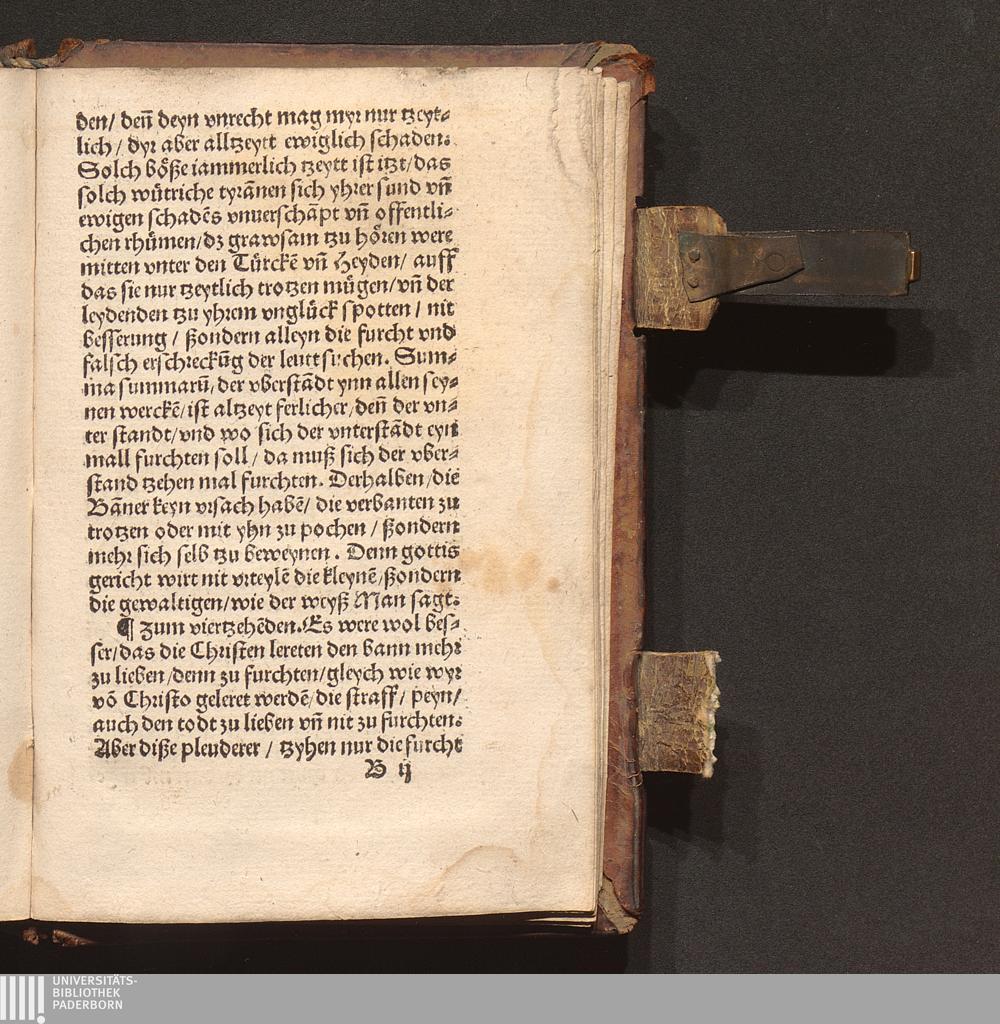 den/ deñ deyn vnrecht mag myr nur tzeyt⸗
lich/ dyr aber alltzeytt ewiglich schaden.
Solch böße iammerlich tzeytt ist itzt/ das
solch wütriche tyrãnen sich yhrer sund vñ
ewigen schadẽs vnuerschãpt vñ offentli⸗
chen rhümen/ dz grawsam tzu hören were
mitten vnter den Türckẽ vñ Heyden/ auff
das sie nur tzeytlich trotzen mügen/ vñ der
leydenden tzu yhrem vnglück spotten/ nit
besserung/ ßondern alleyn die furcht vnd
falsch erschreckũg der leutt suchen. Sum⸗
ma summarũ, der vberstãdt ynn allen sey⸗
nen werckẽ/ ist altzeyt ferlicher/ deñ der vn⸗
ter standt/ vnd wo sich der vnterstãdt eyn
mall furchten soll/ da muß sich der vber⸗
stand tzehen mal furchten. Derhalben/ die
Bãner keyn vrsach habẽ/ die verbanten zu
trotzen oder mit yhn zu pochen/ ßondern
mehr sich selb tzu beweynen. Denn gottis
gericht wirt nit vrteylẽ die kleynẽ/ ßondern
die gewaltigen/ wie der weyß Man sagt.
¶ Zum viertzehẽden. Es were wol bes⸗
ser/ das die Christen lereten den bann mehr
zu lieben/ denn zu furchten/ gleych wie wyr
võ Christo geleret werdẽ/ die straff/ peyn/
auch den todt zu lieben vñ nit zu furchten.
Aber diße pleuderer/ tzyhen nur die furcht
B ij
UNIVERSITÄTS-
BIBLIOTHEK
PADERBORN